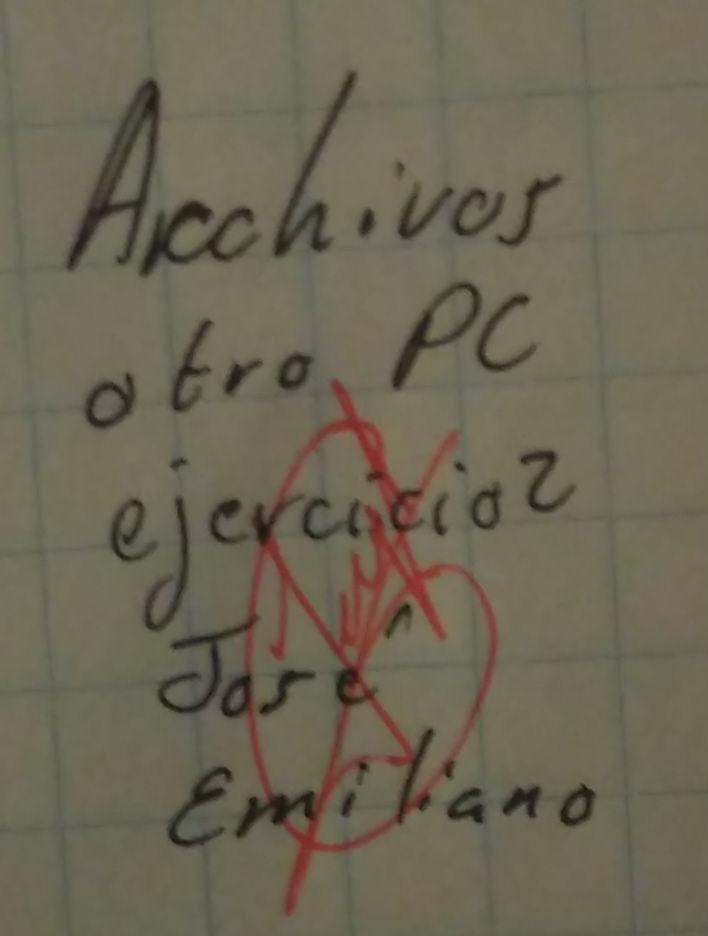 Archivos
otro PC
ejercicio2
Jose
Emiliano